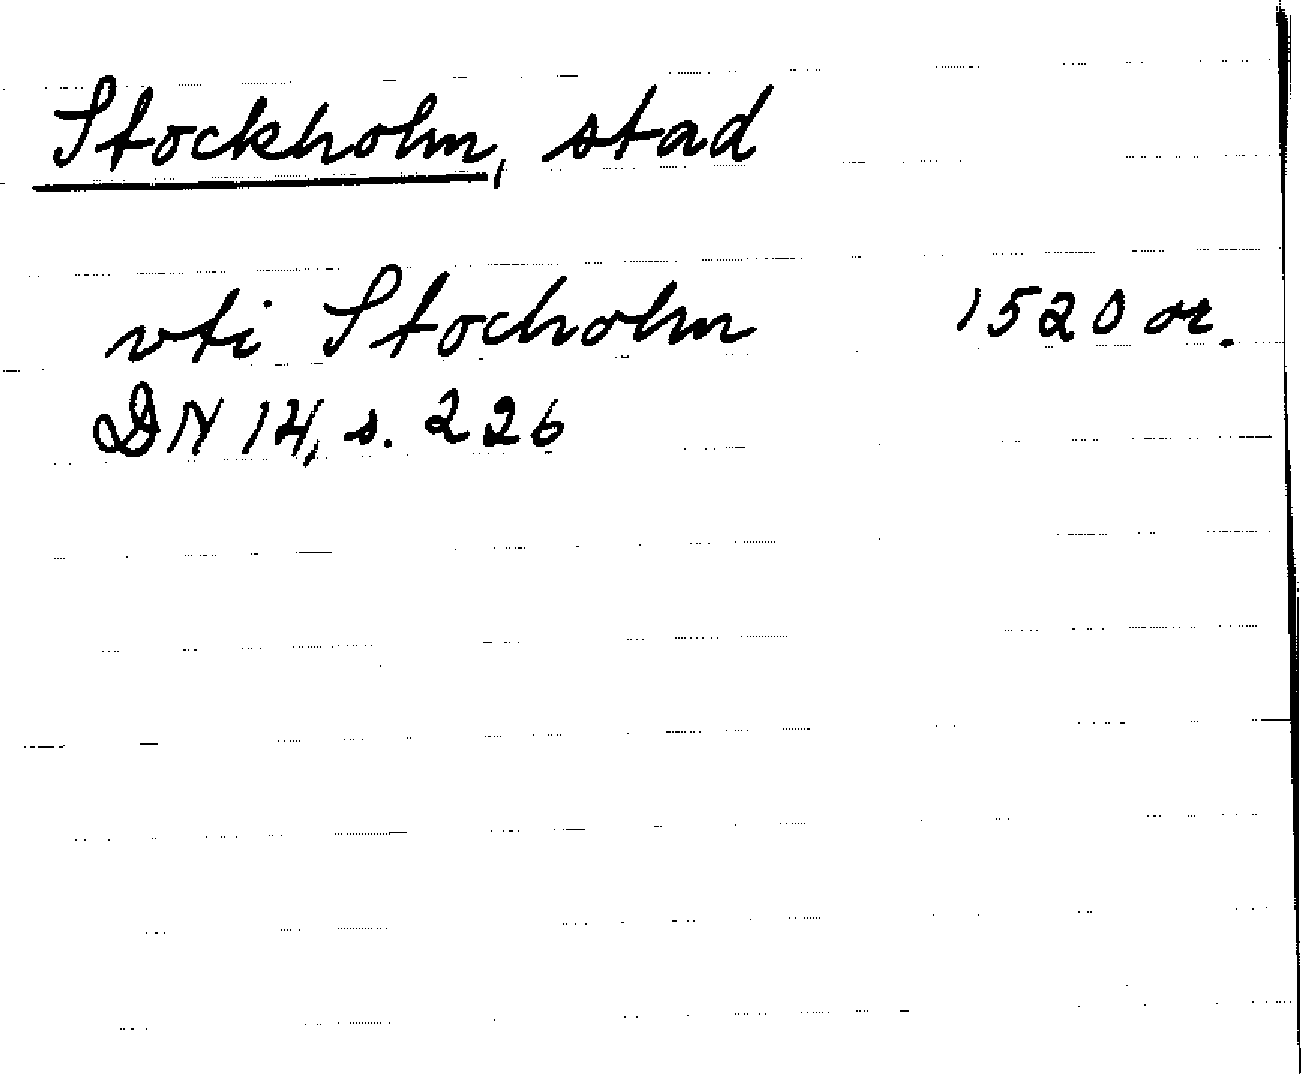 Stockholm, stad
vti Stocholm 1520 or.
DN 14, s. 226